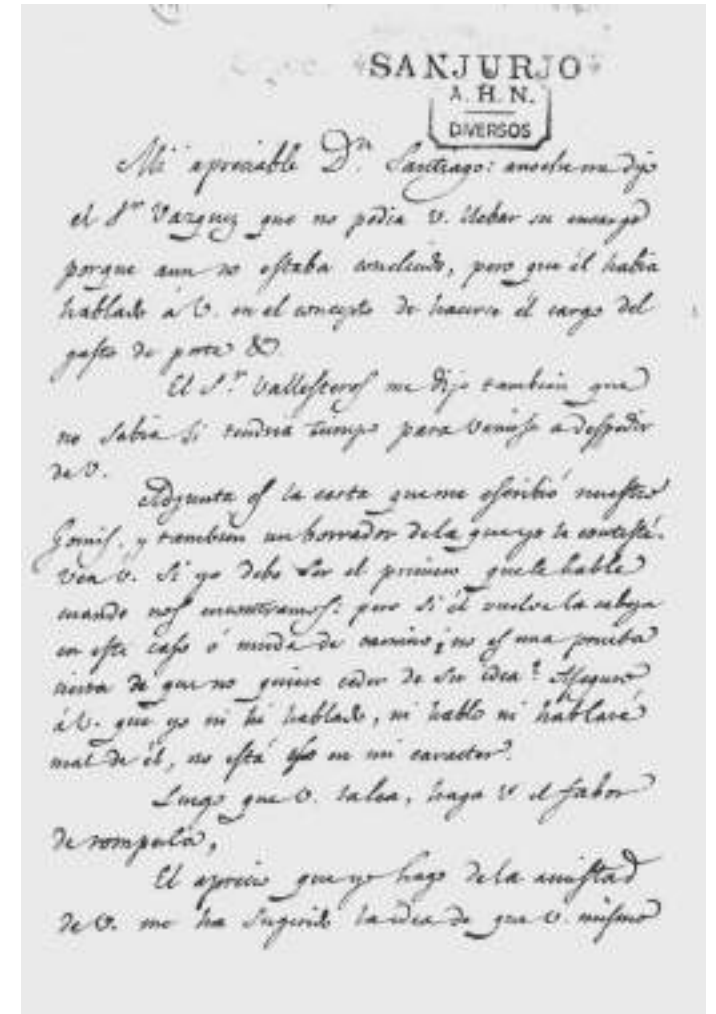 SANJURJO
A. H. N.
DIVERSOS
Mi apreciable Dn. Santiago: anoche me dijo
el Sr. Vazquez que no podia V. llebar su encargo
porque aun no estaba concluido, pero que él habia
hablado á V. en el concepto de hacerse él cargo del
gasto de porte &.
El Sr. Vallesteros me dijo tambien que
no sabia si tendria tiempo para venirse a despedir
de V.
Adjunta es la carta que me escribió nuestro
Gomis, y tambien un borrador de la que yo le contesté.
Vea V. si yo debo ser el primero que le hable
cuando nos encontramos: pero si él vuelve la cabeza
en este caso ó muda de camino; no es una prueba
cierta de que no quiere ceder de su idea? Aseguro
á V. que yo ni he hablado, ni hablo ni hablaré
mal de él, no está eso en mi caracter.
Luego que V. la lea, haga V. el fabor
de romperla,
El aprecio que yo hago de la amistad
de V. me ha sugerido la idea de que V. mismo